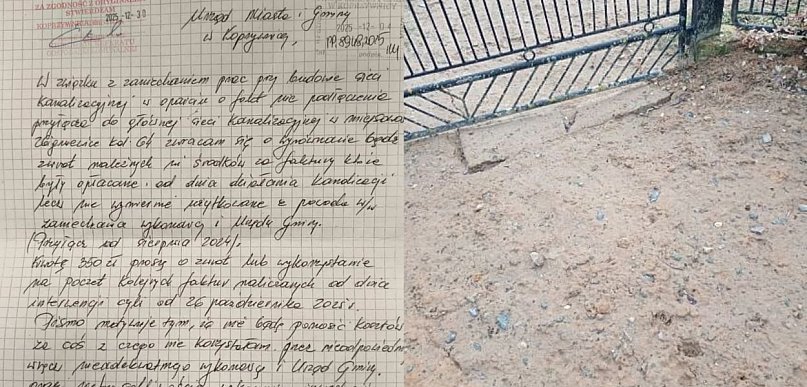 ZA ZGODNOŚĆ Z ORYGINAŁEM
STWIERDZAM
2025-12-30
Urząd Miasta i Gminy
w Koprzywnicy
2025-12-04
W związku z zaniechaniem prac przy budowie sieci
kanalizacyjnej w oparciu o fakt nie podłączenia
przyłącza do głównej sieci kanalizacyjnej w miejscow
zwracam się o wyrównanie bądź
zwrot należnych mi środków za faktury które
były opłacane od dnia działania kanalizacji
lecz nie wzmiernie użytkowane z powodu w/w
zaniechania wykonawcy i Urzędu Gminy.
(Przyłącz od sierpnia 2024).
Kwotę 350 zł proszę o zwrot lub wykorzystanie
na poczet kolejnych faktur naliczanych od dnia
interwencji czyli od 26 października 2025 r.
Pismo motywuje tym, iż nie będę ponosić kosztów
za coś z czego nie korzystałam przez nieodpowiedni
wykonawcy i Urząd Gminy.